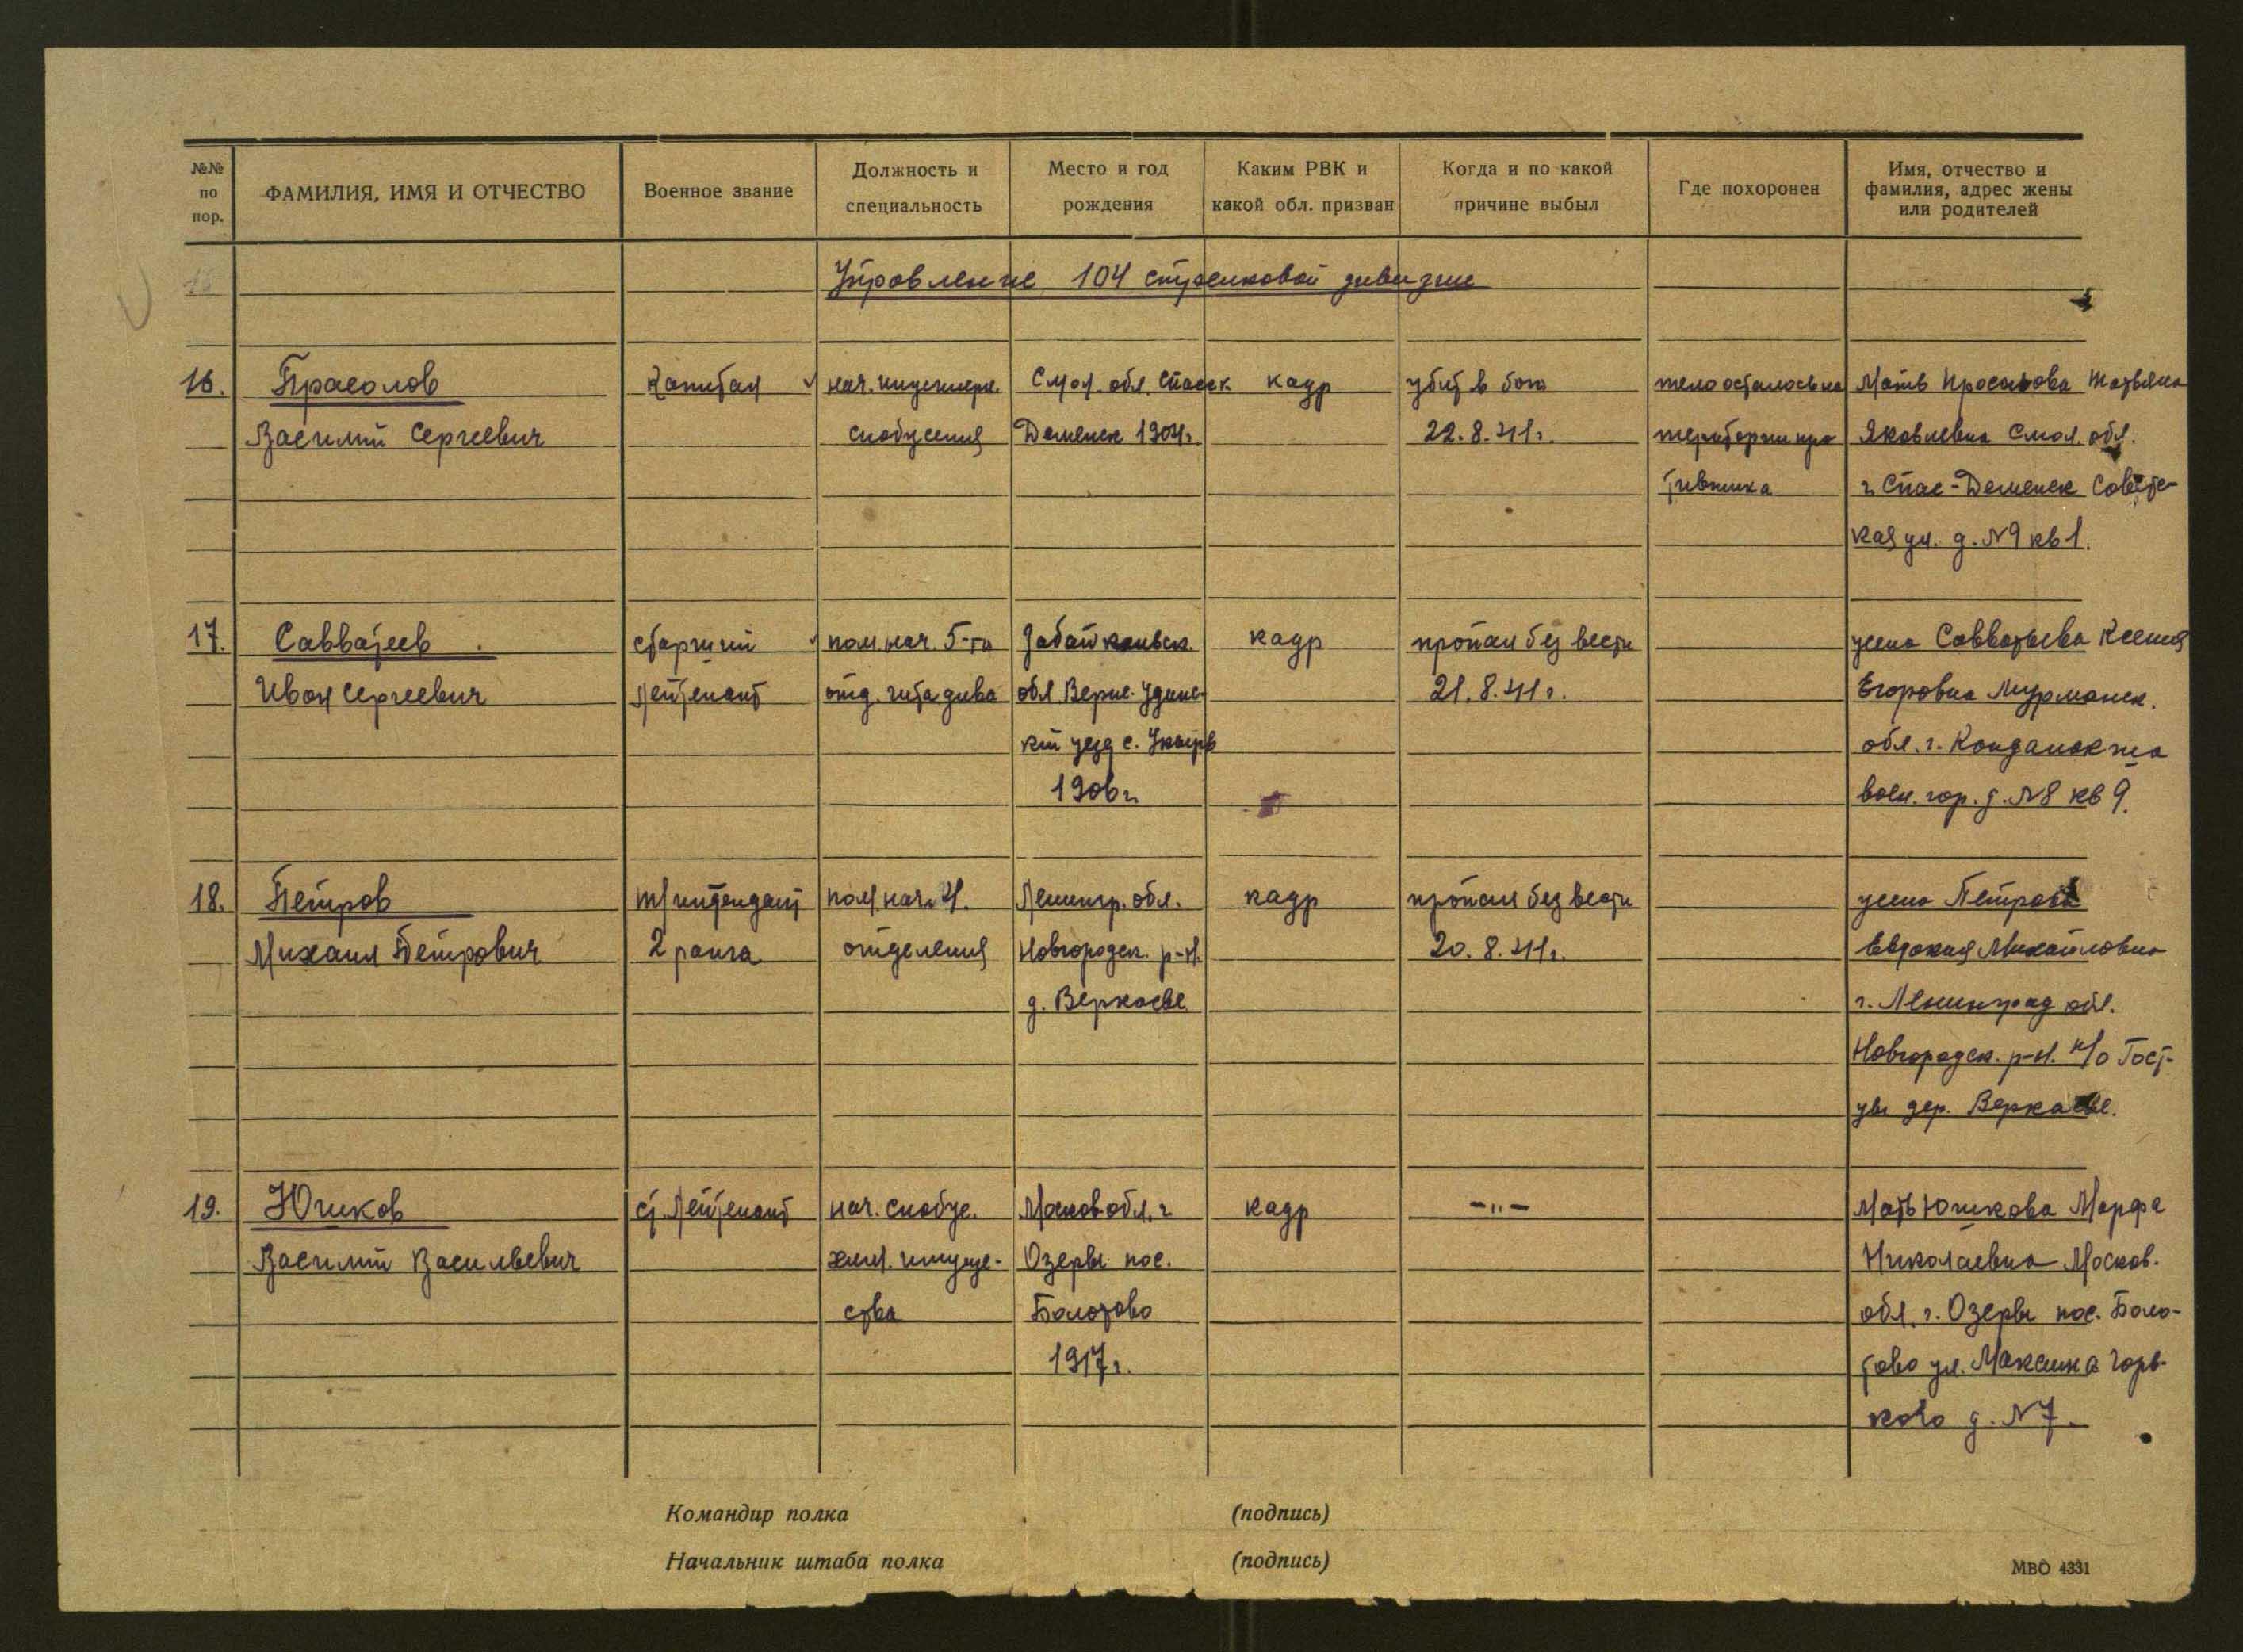 №№ по пор.
ФАМИЛИЯ, ИМЯ И ОТЧЕСТВО
Военное звание
Должность и специальность
Место и год рождения
Каким РВК и какой обл. призван
Когда и по какой причине выбыл
Где похоронен
Имя, отчество и фамилия, адрес жены или родителей
16
Управление 104 стрелковой дивизии
16. Прасолов Капитан нач. инженерн. Смол. обл. Спасск кадр убит в бою тело осталось на Мать Просолова Татьяна
Василий Сергеевич снабжения Деменск 1904г. 22.8.41г. територии про Яковлевна Смол. обл.
тивника г. Спас-Деменск Советс-
кая ул. д. №9 кв 1.
17. Савватеев старший пом. нач. 5-го Забайкальск. кадр пропал без вести жена Савватьева Ксения
Иван Сергеевич Лейтенант отд. штадива обл Верхне-Удинс- 21.8.41г. Егоровна Мурманск.
кий уезд с. обл. г. Кондалакша
1906г. воен. гор. д. №8 кв 9.
18. Петров т/интендант пом. нач. 4. Ленингр. обл. кадр пропал без вести жена Петрова
Михаил Петрович 2 ранга отделения Новгородск. р-н. 20.8.41г. Евдокия Михайловна
д. Веркасье г. Ленинград обл.
Новгородск. р-н. п/о Гост-
цы дер. Веркасье.
19. Юшков ст. Лейтенант нач. снабже. Москов обл. г. кадр -"- Мать Юшкова Марфа
Василий Васильевич хим. имуще- Озеры пос. Николаевна Москов.
ства Болотово обл. г. Озеры пос. Боло-
1917г. тово ул. Максима Горь-
кого д. №7.
Командир полка (подпись)
Начальник штаба полка (подпись)
МВО 4331